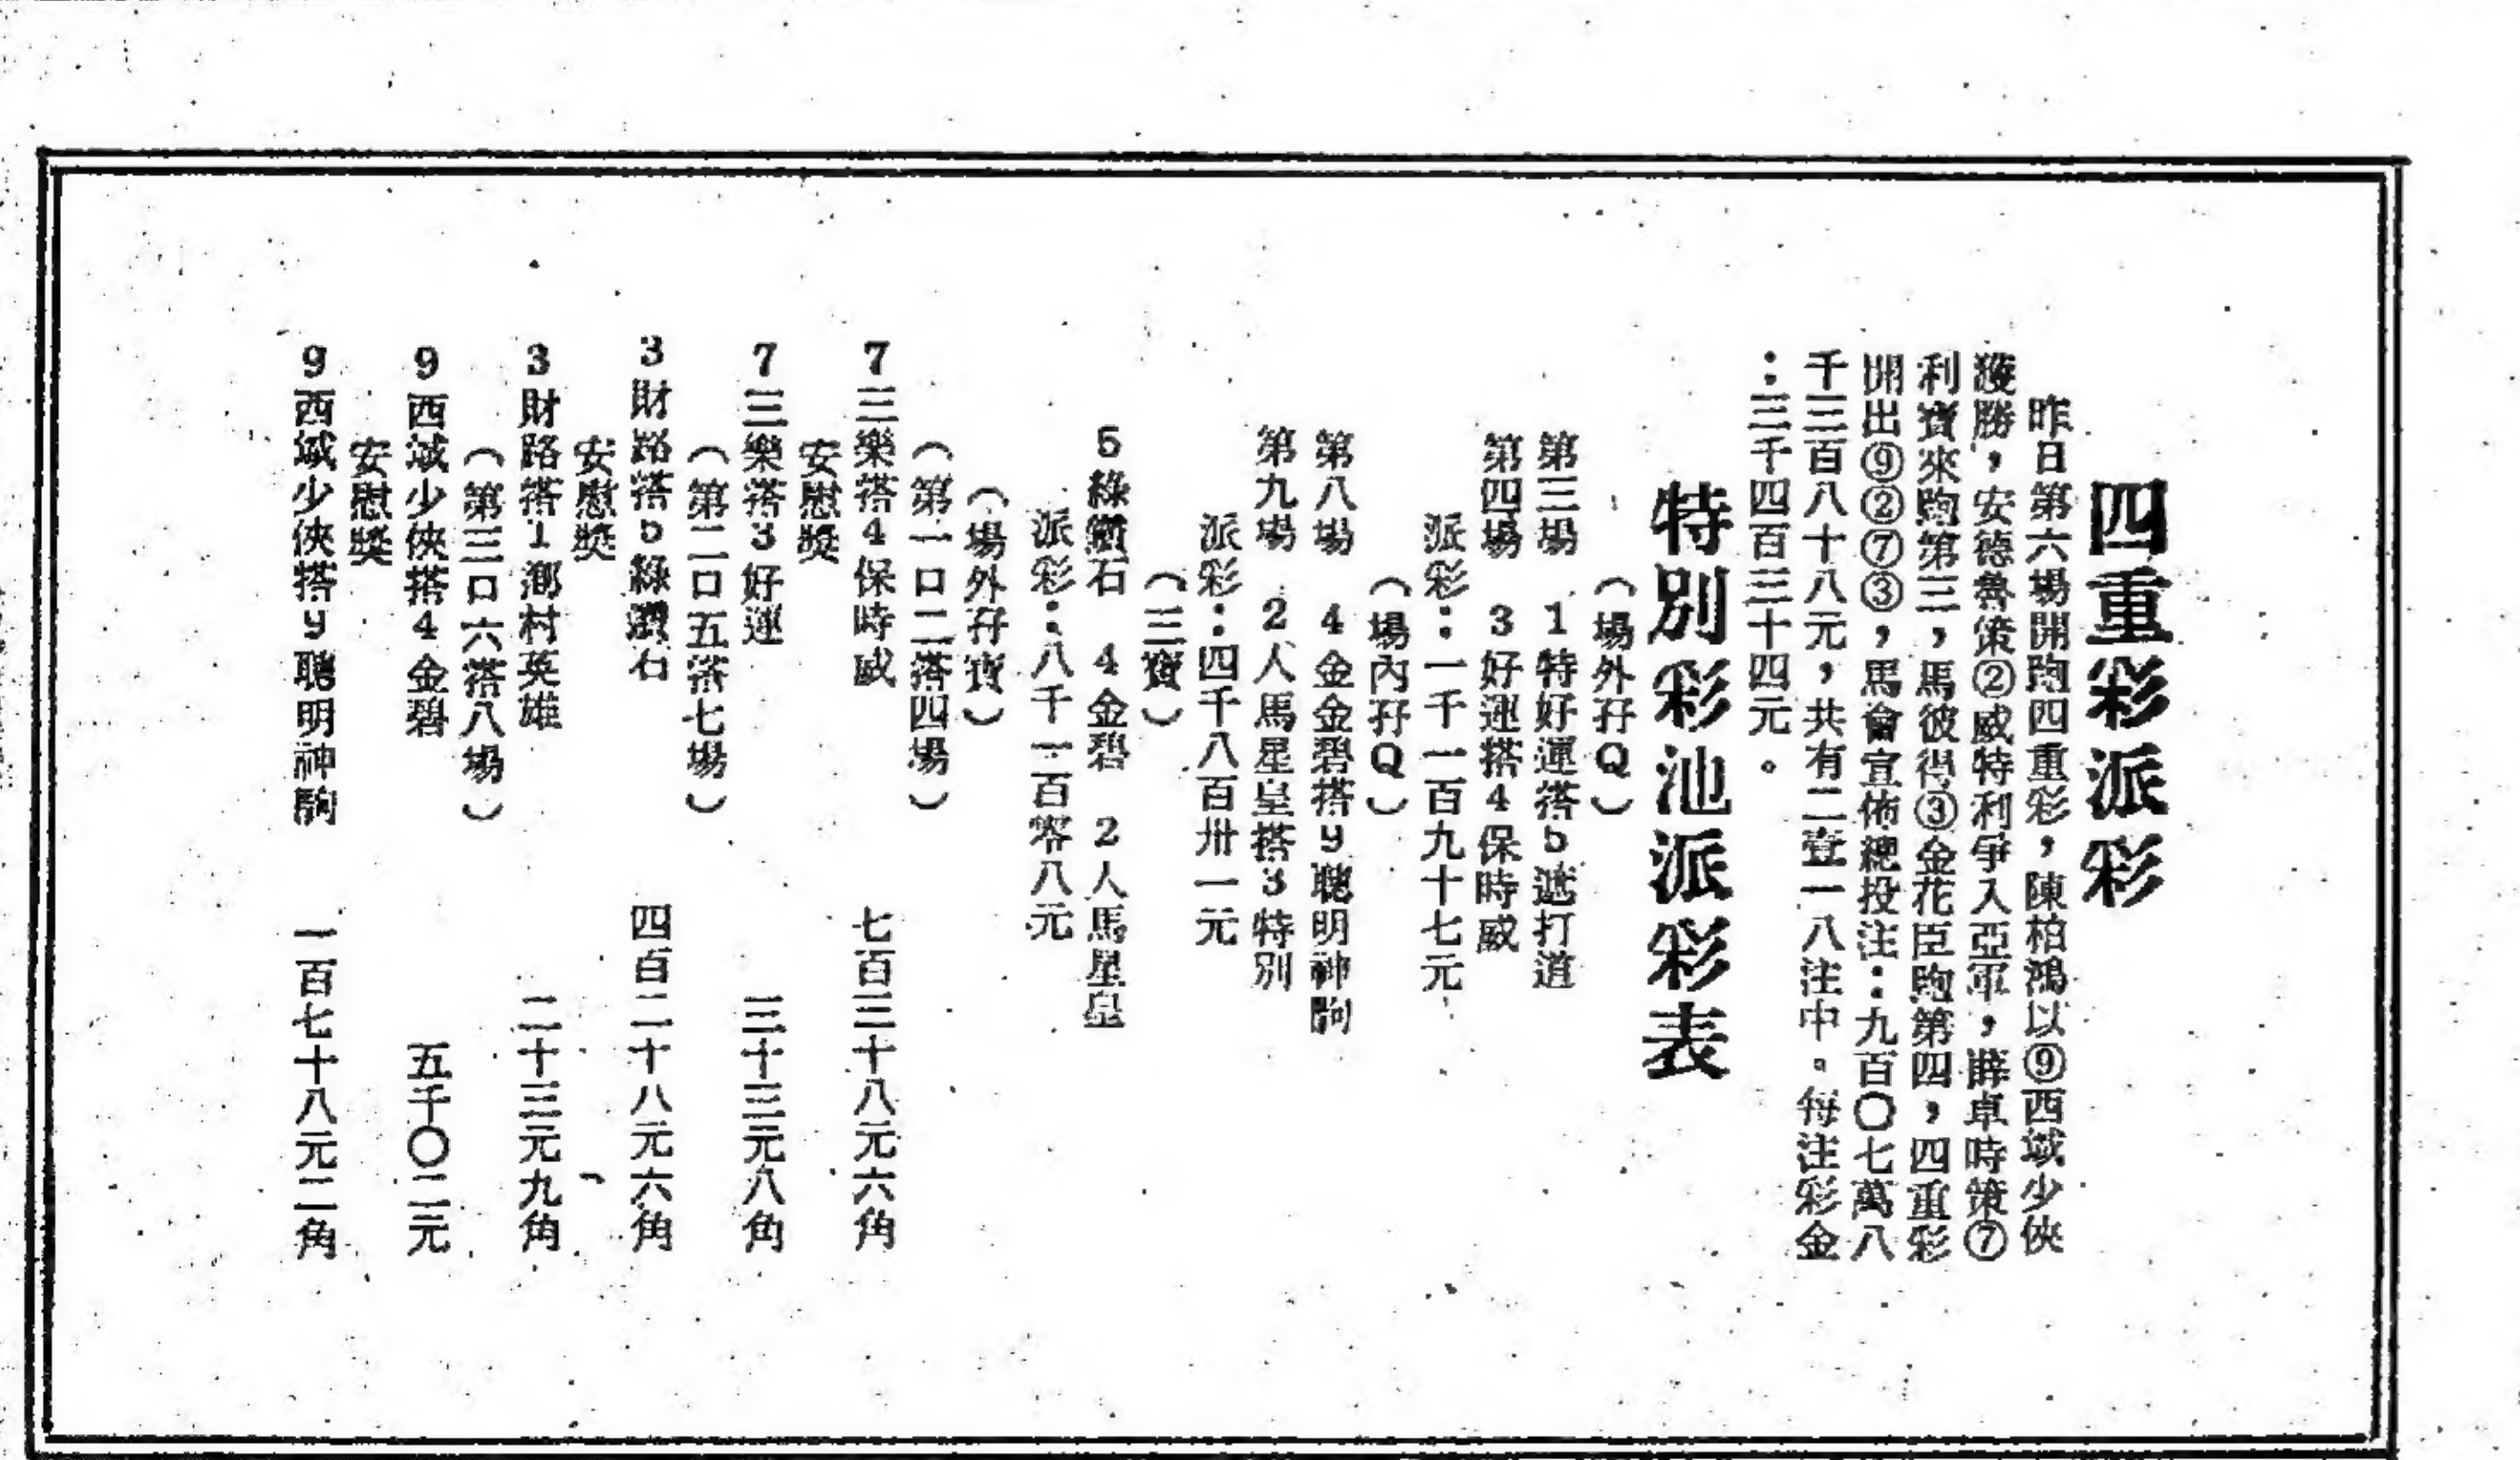 四重彩派彩
昨日第六場開跑四重彩，陳柏鴻以⑨西域少俠
獲勝，安德魯策②威特利爭入亞軍，薛卓時策⑦
利寶來跑第三，馬彼得③金花臣跑第四，四重彩
開出⑨②⑦③，馬會宣佈總投注：九百〇七萬八
千三百八十八元，共有二壹一八注中。每注彩金
：三千四百三十四元。
特別彩池派彩表
（場外孖Q）
第三場　1特好運搭5遞打道
第四場　3好運搭4保時威
派彩：一千一百九十七元
（場內孖Q）
第八場　4金金碧搭9聰明神駒
第九場　2人馬星皇搭3特別
派彩：四千八百卅一元
（三寶）
5綠鑽石　4金碧　2人馬星皇
派彩：八千一百零八元
（場外孖寶）
（第一口二搭四場）
7三樂搭4保時威　七百三十八元六角
安慰獎
7三樂搭3好運　三十三元八角
（第二口五搭七場）
3財路搭5綠鑽石　四百二十八元六角
安慰獎
3財路搭1鄉村英雄　二十三元九角
（第三口六搭八場）
9西域少俠搭4金碧　五千〇二元
安慰獎
9西域少俠搭9聰明神駒　一百七十八元二角